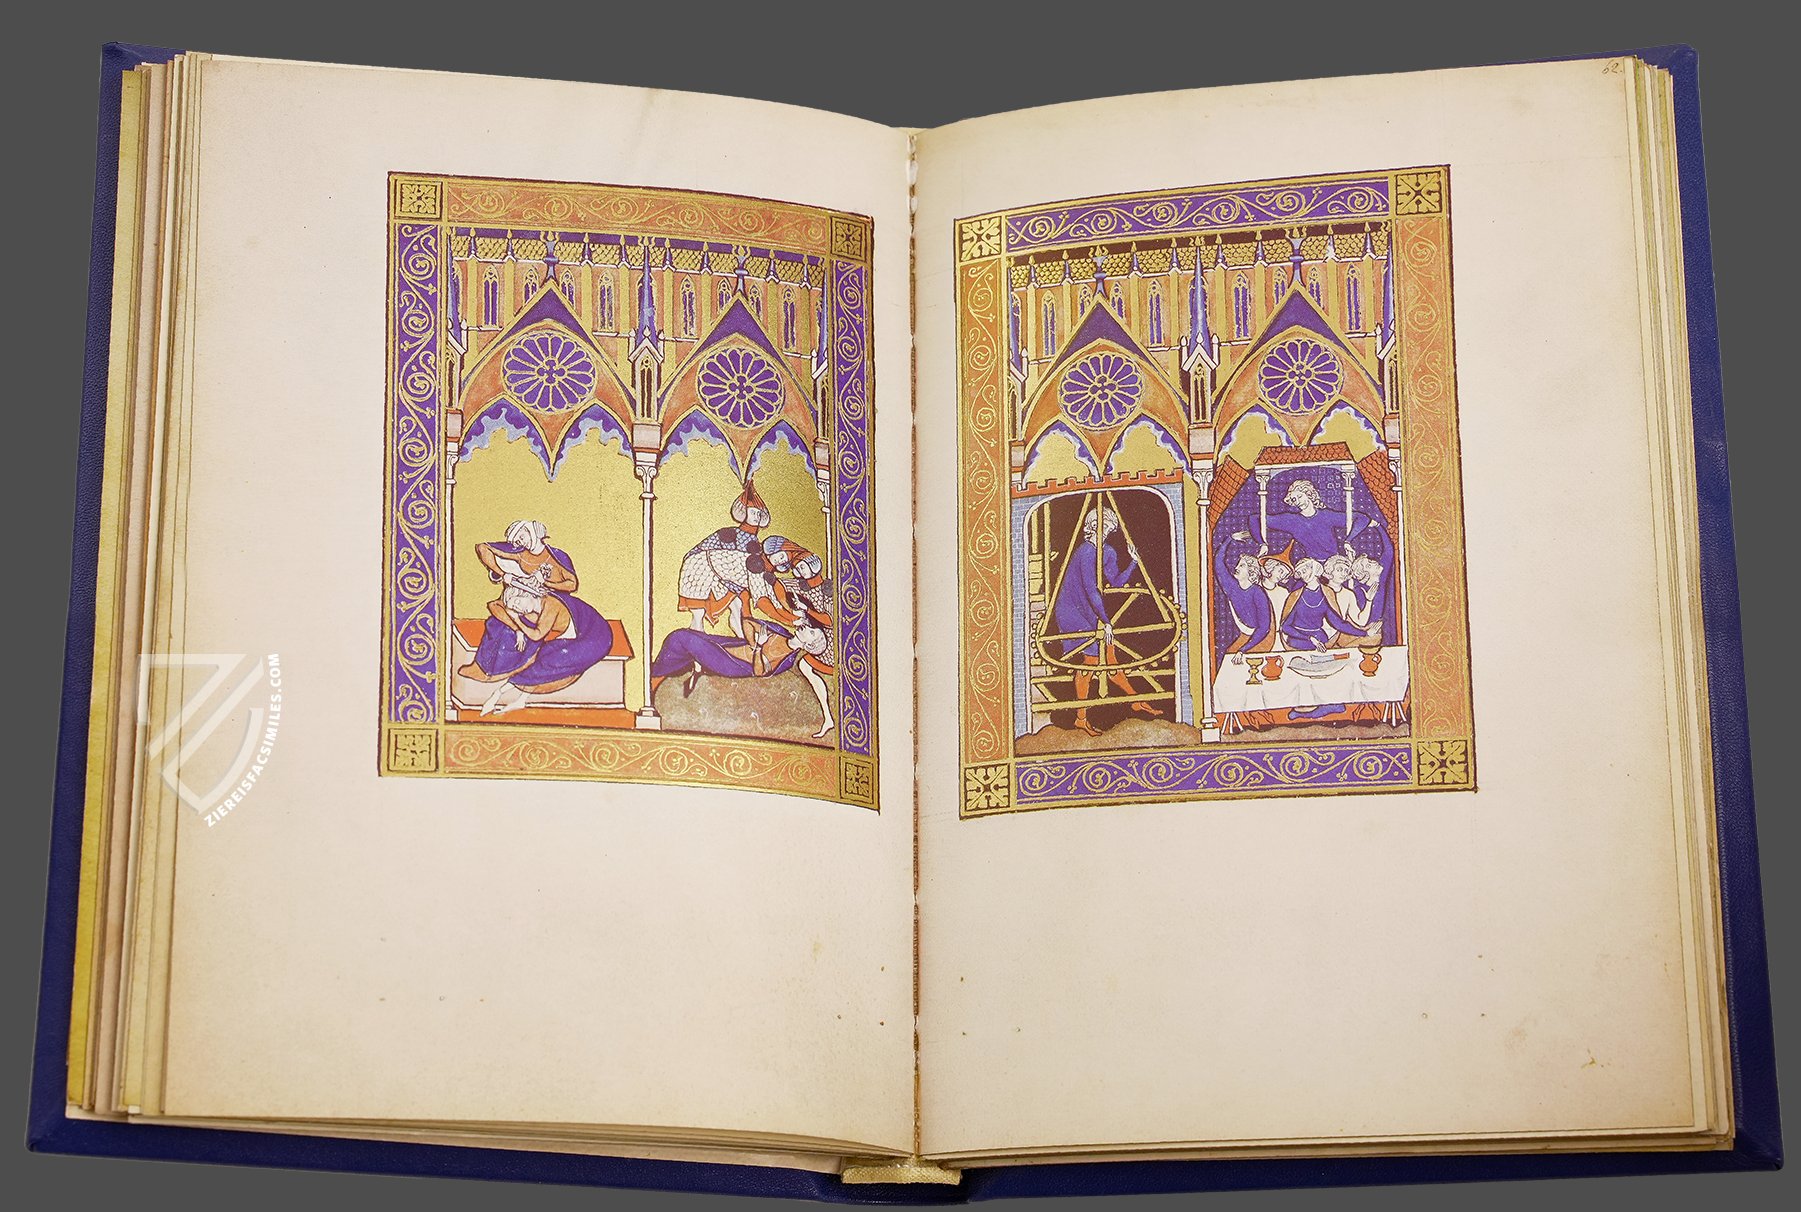 62.
ZIEREISFACSIMILES.COM